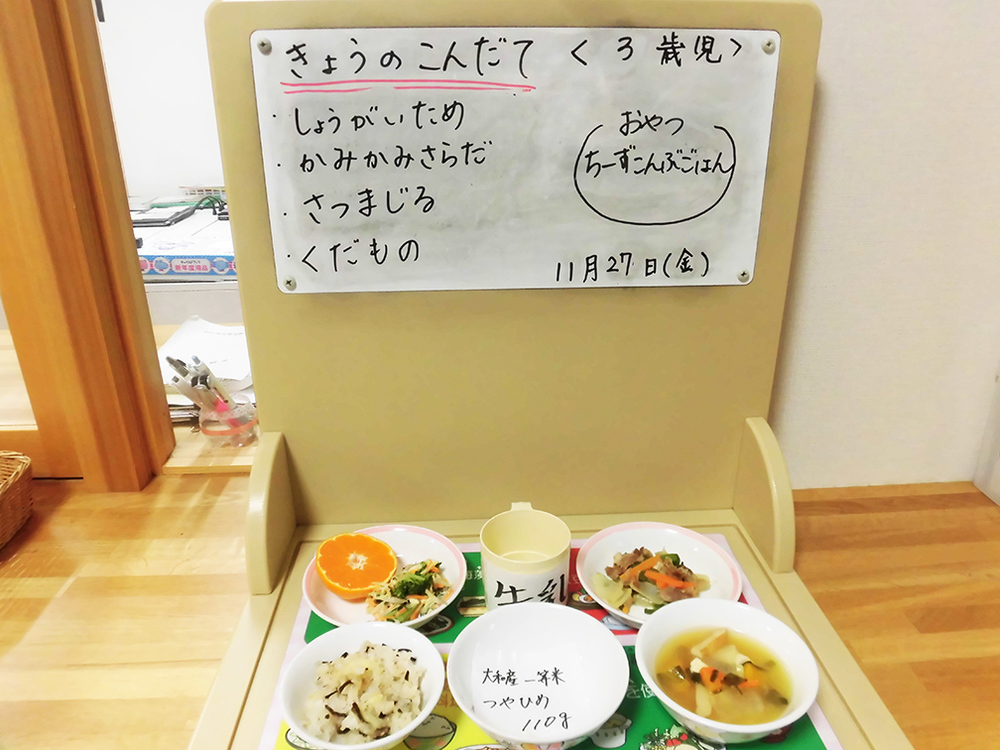 きょうのこんだて <3歳児>
・しょうがいため
・かみかみさらだ
・さつまじる
・くだもの
おやつ
ちーずこんぶごはん
11月27日(金)
牛乳
大和産一等米
つやひめ
110g